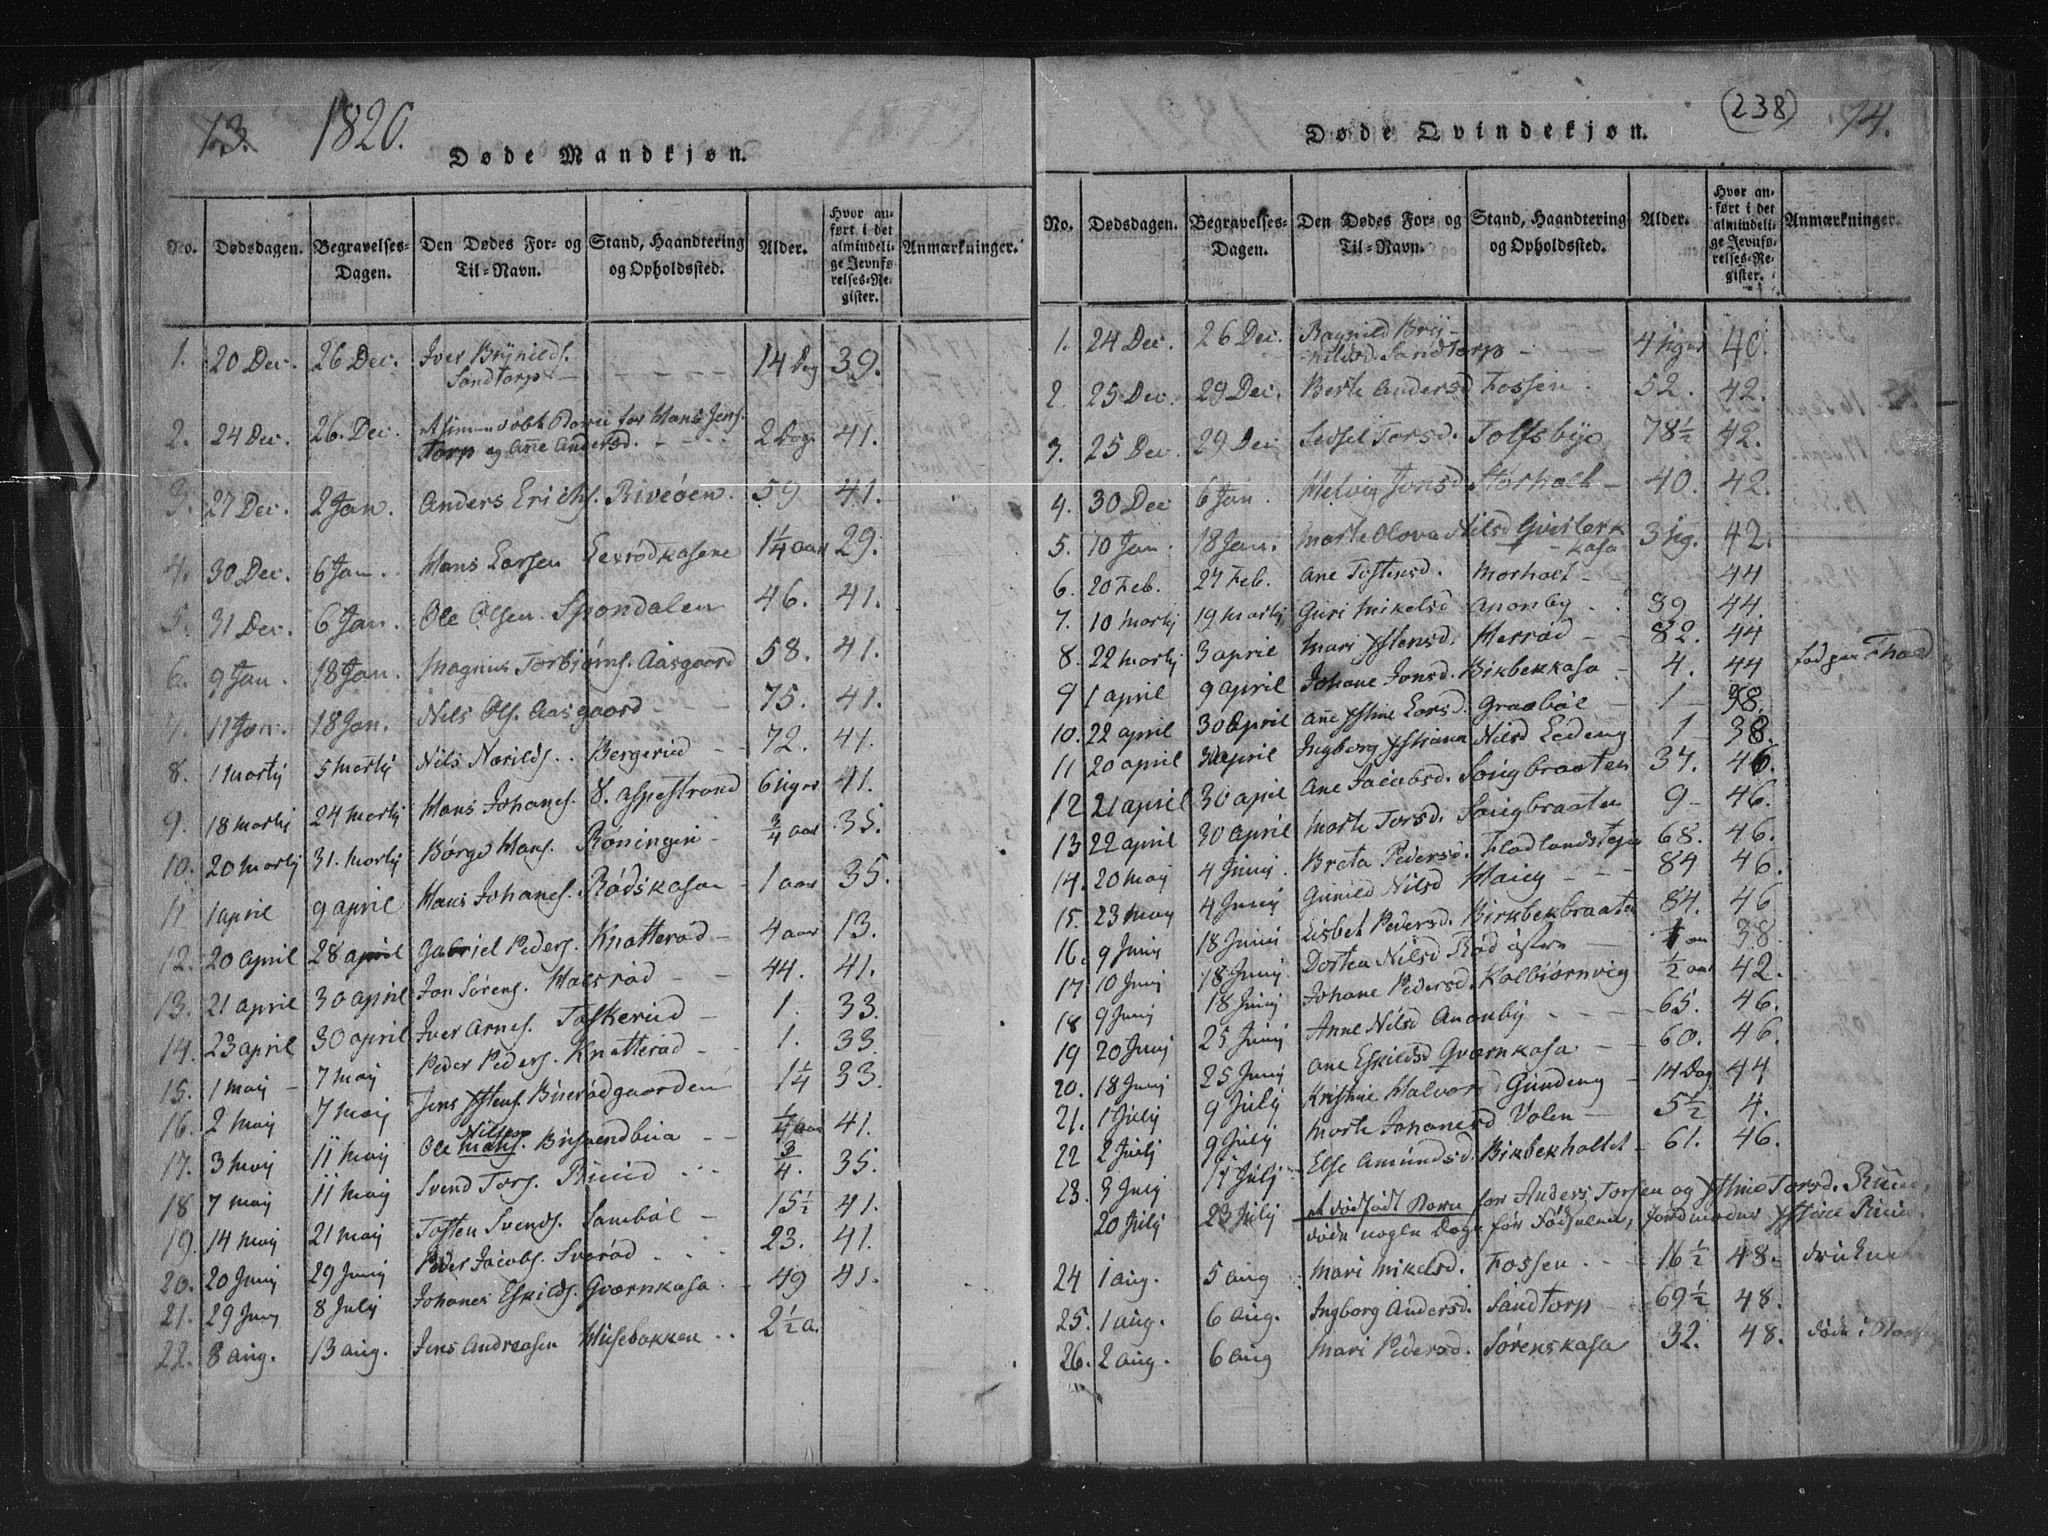 13. 1820.
Døde Mandkjøn.
No. Dødsdagen. Begravelses-Dagen. Den Dødes For- og Til-Navn. Stand, Haandtering og Opholdssted. Alder. Hvor anført i det almindelige Jevnførelses-Register. Anmærkninger.
1. 20 Dec. 26 Dec. Iver Brynilds.
Sandtorp 14 Dag 39.
2. 24 Dec. 26. Dec. døbt Barn for Hans Jens.
Torp og Anne Andersd. 2 Dage 41.
3. 27 Dec. 2 Jan. Anders Erichs. Riveøen. 59 41.
4. 30 Dec. 6 Jan. Hans Larsen Lexrødkasene 1¼ aar 29.
5. 31 Dec. 6 Jan. Ole Olsen Spondalen 46. 41.
6. 9 Jan. 18 Jan. Magnus Torbjørns. Aasgaard 58. 41.
7. 11 Jan. 18 Jan. Nils Ols. Aasgaard 75. 41.
8. 1 Martij 5 Martij Nils Narilds. Bergerud 72. 41.
9. 18 Martij 24 Martij Hans Johanes. Ø. Aspestrand 6 Uger 41.
10. 20 Martij 31. Martij Børge Hans. Røningen ¾ aar 35.
11 1 april 9 april Hans Johanes. Rødskasan 1 aar 35.
12. 20 april 28 april Gabriel Peders. Knatterød 4 aar 13.
13. 21 april 30 april Jon Sørens. Halsrød 44. 41.
14. 23 april 30 april Iver Arnes. Taskerud 1. 33.
15. 1 Maij 7 Maij Peder Peders. Knatterød 1. 33
16. 2 Maij 7 Maij Jens Xstens. Buerødgaarden 1¼ 33.
17. 3 Maij 11 Maij Ole Nilsen Hans. Brysvendbua ¼ aar 41.
18 7 Maij 11 Maij Svend Tors. Ruud ¾. 35.
19. 14 Maij 21 Maij Tosten Svends. Sambøl 15½ 41.
20. 20 Junij 29 Junij Peder Jacobs. Sverød 23. 41.
21. 29 Junij 8 Julij Johanes Eskilds. Gværnkasa 49 41.
22. 8 aug. 13 aug. Jens Andreasen Husebakken 2½ a.
(238) 14.
Døde Qvindekjøn.
No. Dødsdagen. Begravelses-Dagen. Den Dødes For- og Til-Navn. Stand, Haandtering og Opholdssted. Alder. Hvor anført i det almindelige Jevnførelses-Register. Anmærkninger.
1. 24 Dec. 26 Dec. Ragnild Bry-
nildsd. Sandtorp 4 Uger 40.
2. 25 Dec. 29 Dec. Berte Andersd Fossen 52. 42.
3. 25 Dec. 29 Dec Sedsel Torsd. Tolfsbye 78½ 42.
4. 30 Dec 6 Jan. Helvig Jonsd. Morholt 40. 42.
5. 10 Jan. 18 Jan. Marte Olova Nilsd Gvislerkasa 3 Ug. 42.
6. 20 Feb. 27 Feb. Ane Tostensd. Morholt 44
7. 10 Martij 19 Martij Guri Mikelsd Anonby 89 44.
8. 22 Martij 3 april Mari Xstensd. Herrød 82. 44
9 1 april 9 april Johane Jonsd. Birbekkasa 4. 44
10. 22 april 30 april Ane Xstine Larsd. Graabøl 1 38.
11 20 april 30 april Ingborg Xstiana Nilsd Ledeng 1 38.
12 21 april 30 april Ane Jacobsd. Saugbraaten 34. 46.
13 22 april 30 april Marte Torsd. Saugbraaten 9 46.
14. 20 Maij 4 Junij Breta Pedersd. Fladlandstejen 68. 46.
15. 23 Maij 4 Junij Gunild Nilsd Haug 84 46.
16. 9 Junij 18 Junij Lisbet Pedersd. Birkbekbraaten 84. 46
17 10 Junij 18 Junij Dortea Nilsd Rød østre 1 aar 38.
18 9 Junij 18 Junij Johane Pedersd. Kolbiørnvig ½ aar 42.
19 20 Junij 25 Junij Anne Nilsd Anonby 65. 46.
20. 18 Junij 25 Junij Ane Eskildsd Gværnkasa 60. 46.
21. 1 Julij 9 Julij Kristine Halvorsd Gundeng 14 Dag 44
22 2 Julij 9 Julij Marte Johanesd Volen 5½ 4.
23. 3 Julij Julij Else Amundsd. Birbekholtet 61. 46.
20 Julij 23 Julij et dødfødt Barn for Anders Torsen og Xstine Torsd. Ruud,
døde nogle Dage før Fødselen, Jordmoder Xstine Ruud.
24 1 aug. 5 aug Mari Mikelsd. Fossen 16½ 48.
25. 1 aug. 6 aug. Ingborg Andersd. Sandtorp 69½ 48.
26. 2 aug. 6 aug Mari Pedersd. Sørenskasa 32. 48. døde i